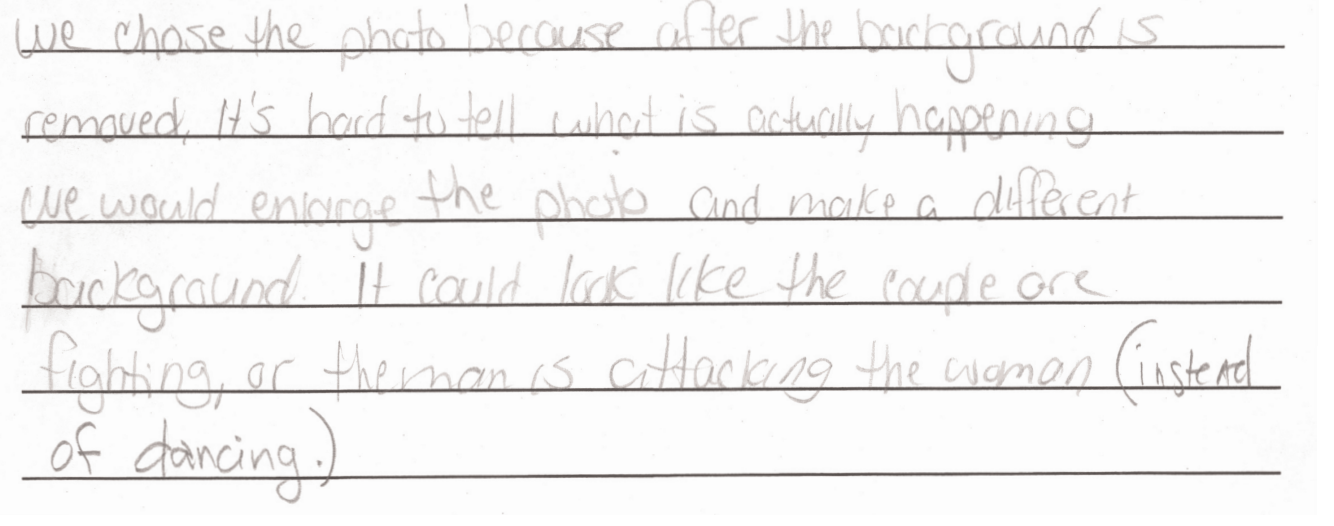 We chose the photo because after the background is
removed, It's hard to tell what is actually happening
We would enlarge the photo and make a different
background. It could look like the couple are
fighting, or the man is attacking the woman (instead
of dancing.)